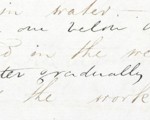 in water —
one below
in the we
ter gradually
the work